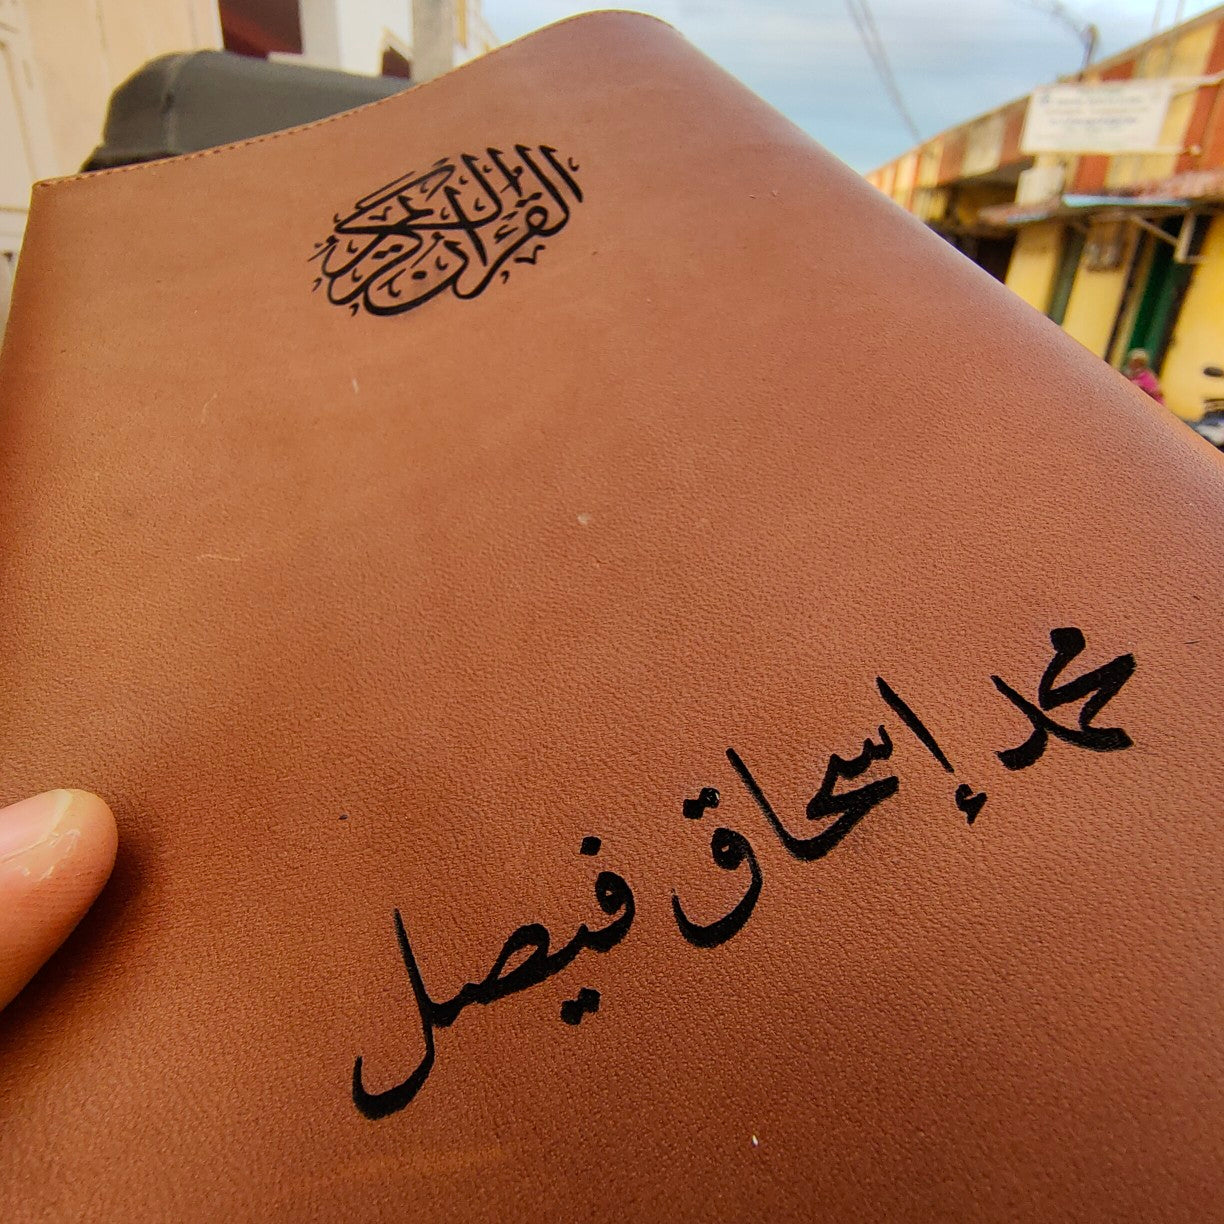 القرآن الكريم
محمد إسحاق فيصل